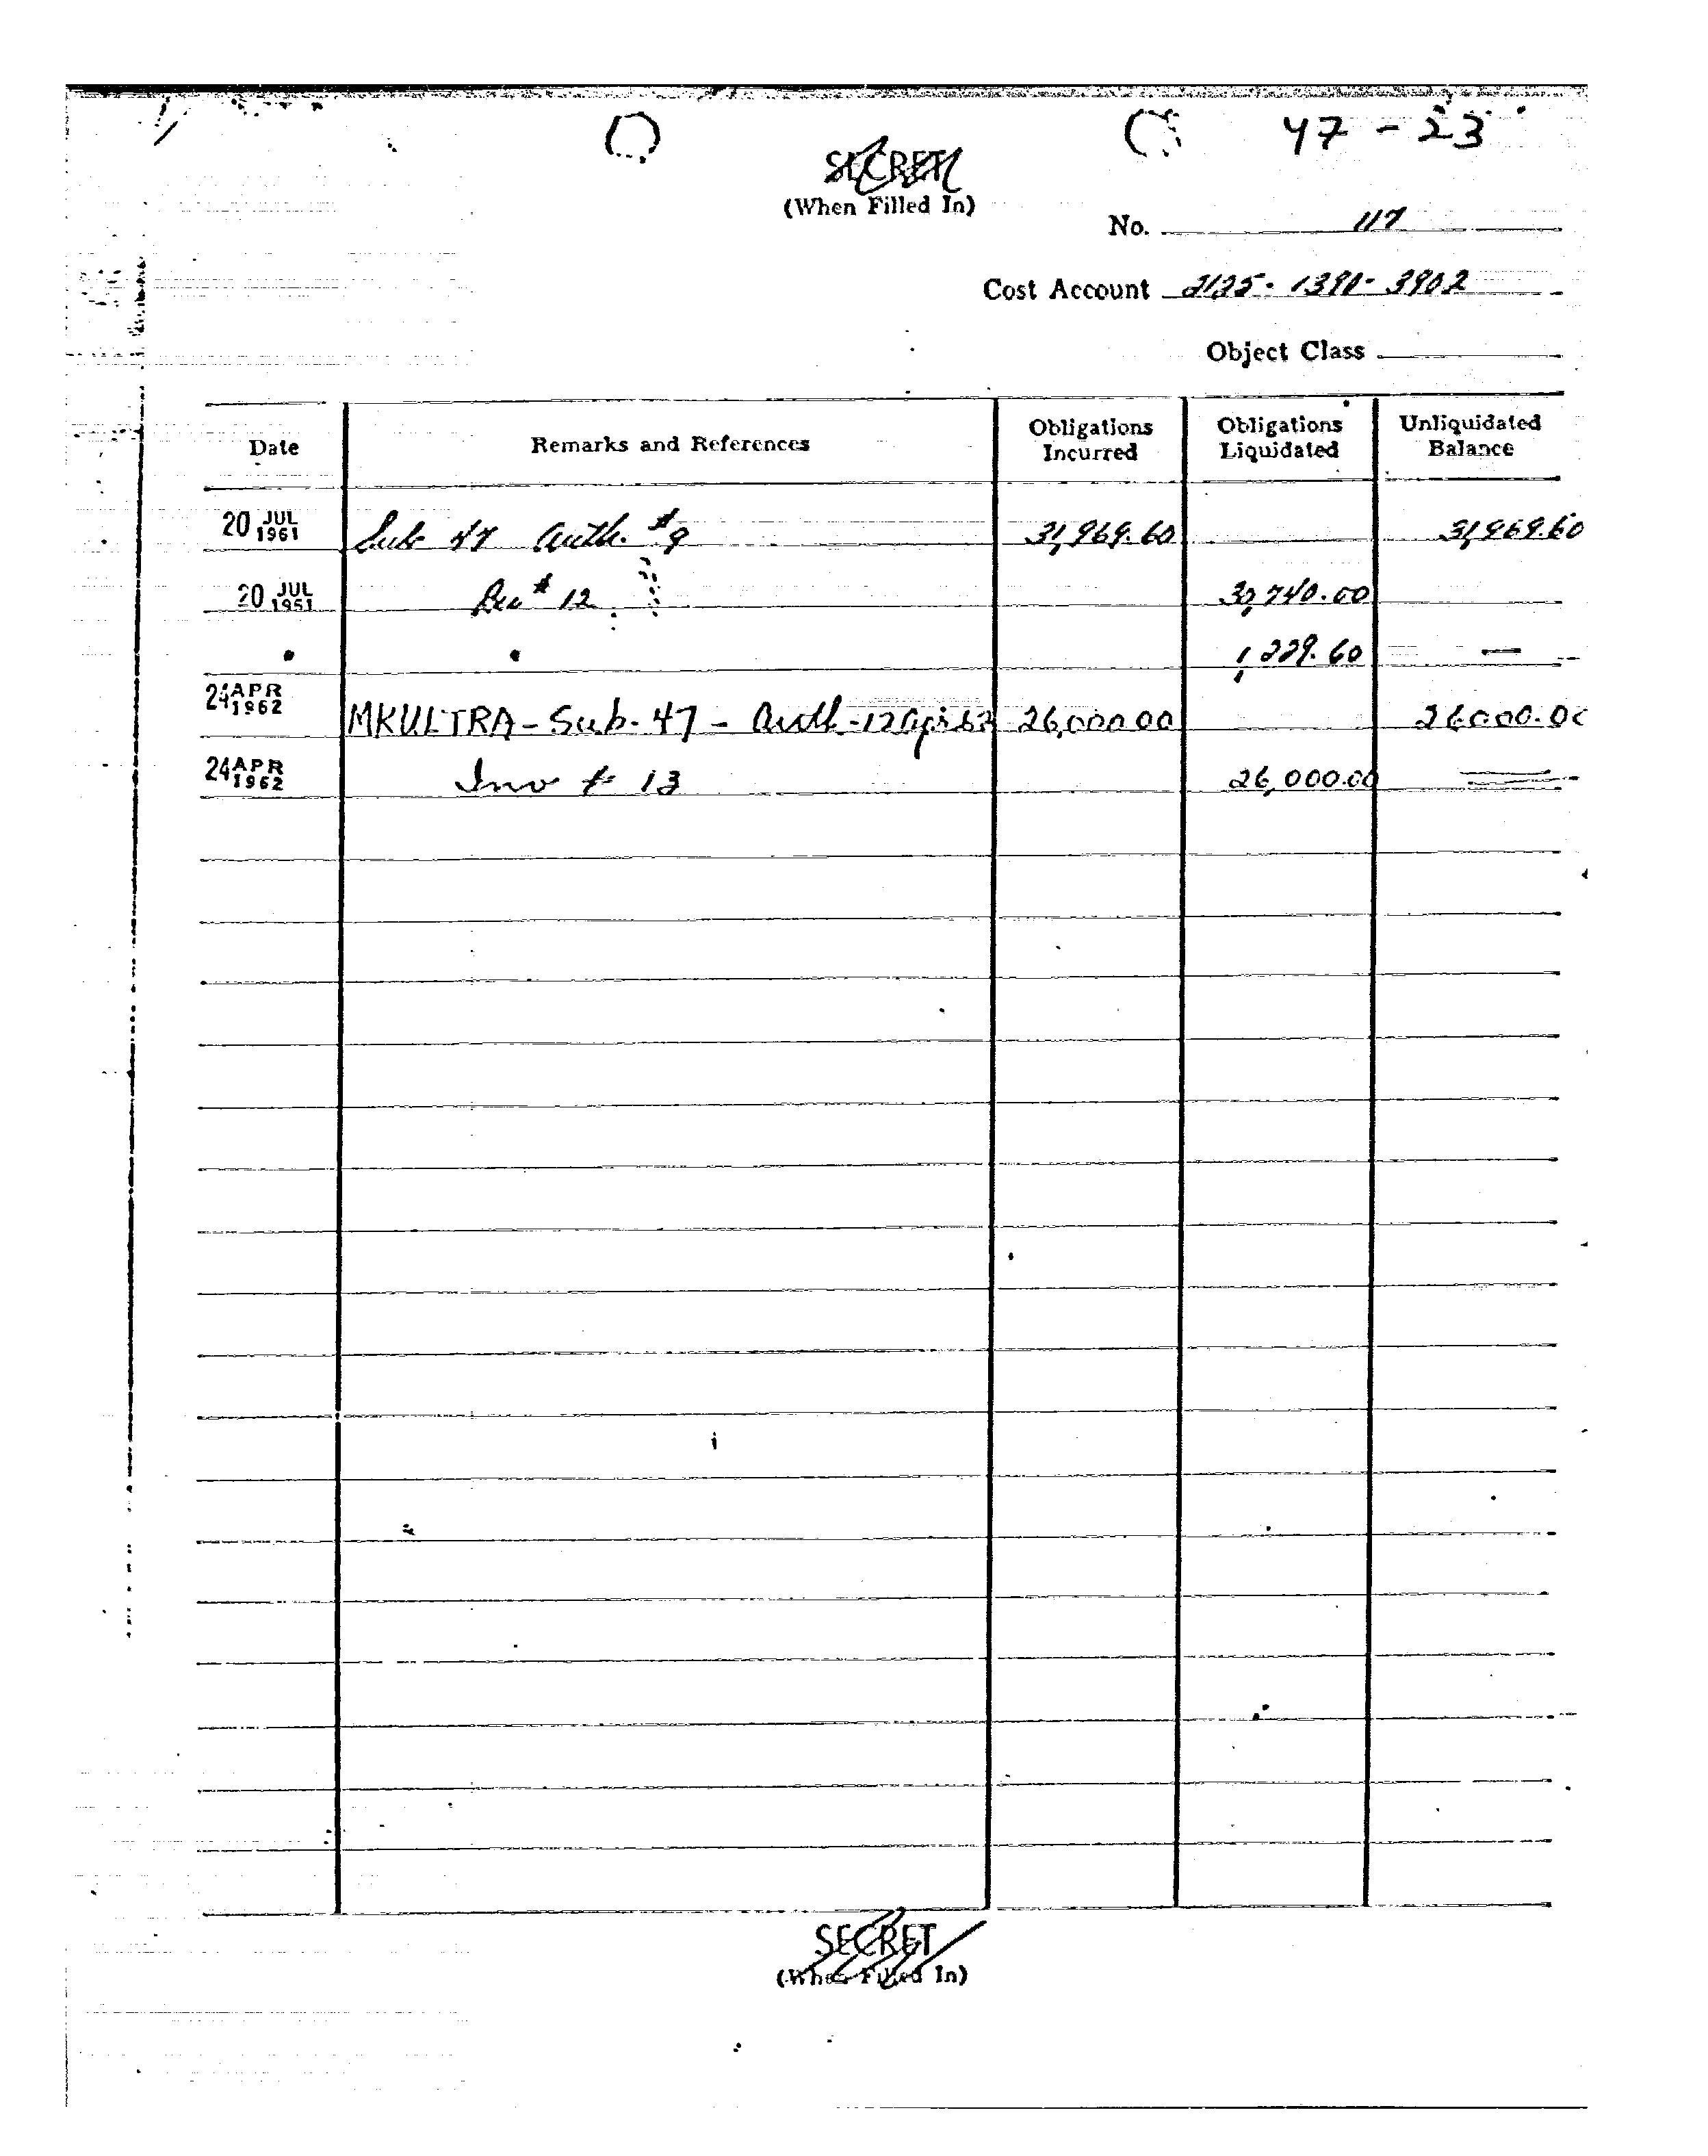 47 - 23
SECRET
(When Filled In)
No. 117
Cost Account 2125-1390-3902
Object Class
Date Remarks and References Obligations Incurred Obligations Liquidated Unliquidated Balance
20 JUL 1961 Sub 47 Auth. #9 31,969.60 31,969.60
20 JUL 1961 #12 30,740.00
1,229.60 —
24 APR 1962 MKULTRA - Sub. 47 - Auth - 12 Apr 62 26,000.00 26,000.00
24 APR 1962 Inv # 13 26,000.00
SECRET
(When Filled In)